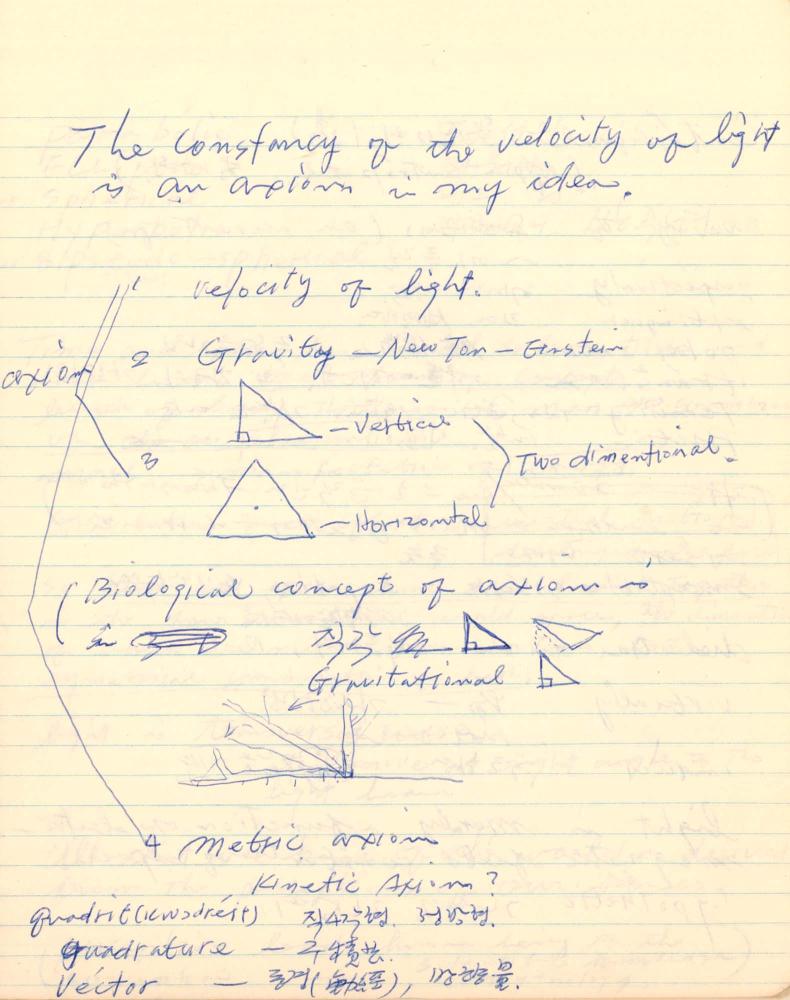 The constancy of the velocity of light
is an axiom in my idea.
1 velocity of light.
axiom
2 Gravity – NewTon – Einstein
– Vertical
3
Two dimentional.
– Horizontal
(Biological concept of axiom is
직각
Gravitational
4 metric axiom
Kinetic Axiom?
quadrit( 직4각형. 정방형.
quadrature – 구積法.
Véctor – 동경( ), 방향量.